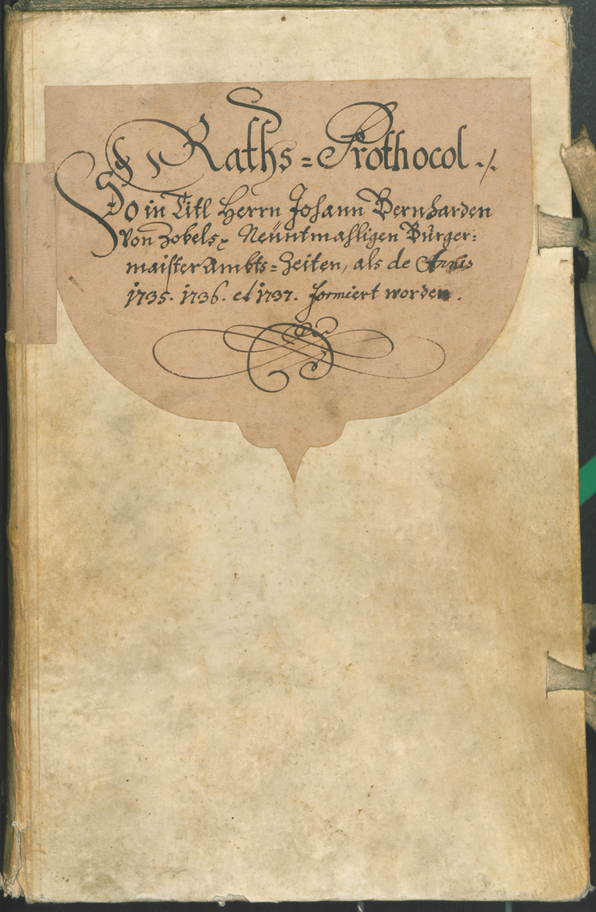 Raths=Prothocol ./.
So in Titl Herrn Johann Bernharden
Von Zobels Neüntmahligen Burger=
maister Ambts=Zeiten, als de Annis
1735. 1736. et 1737. formiert worden.